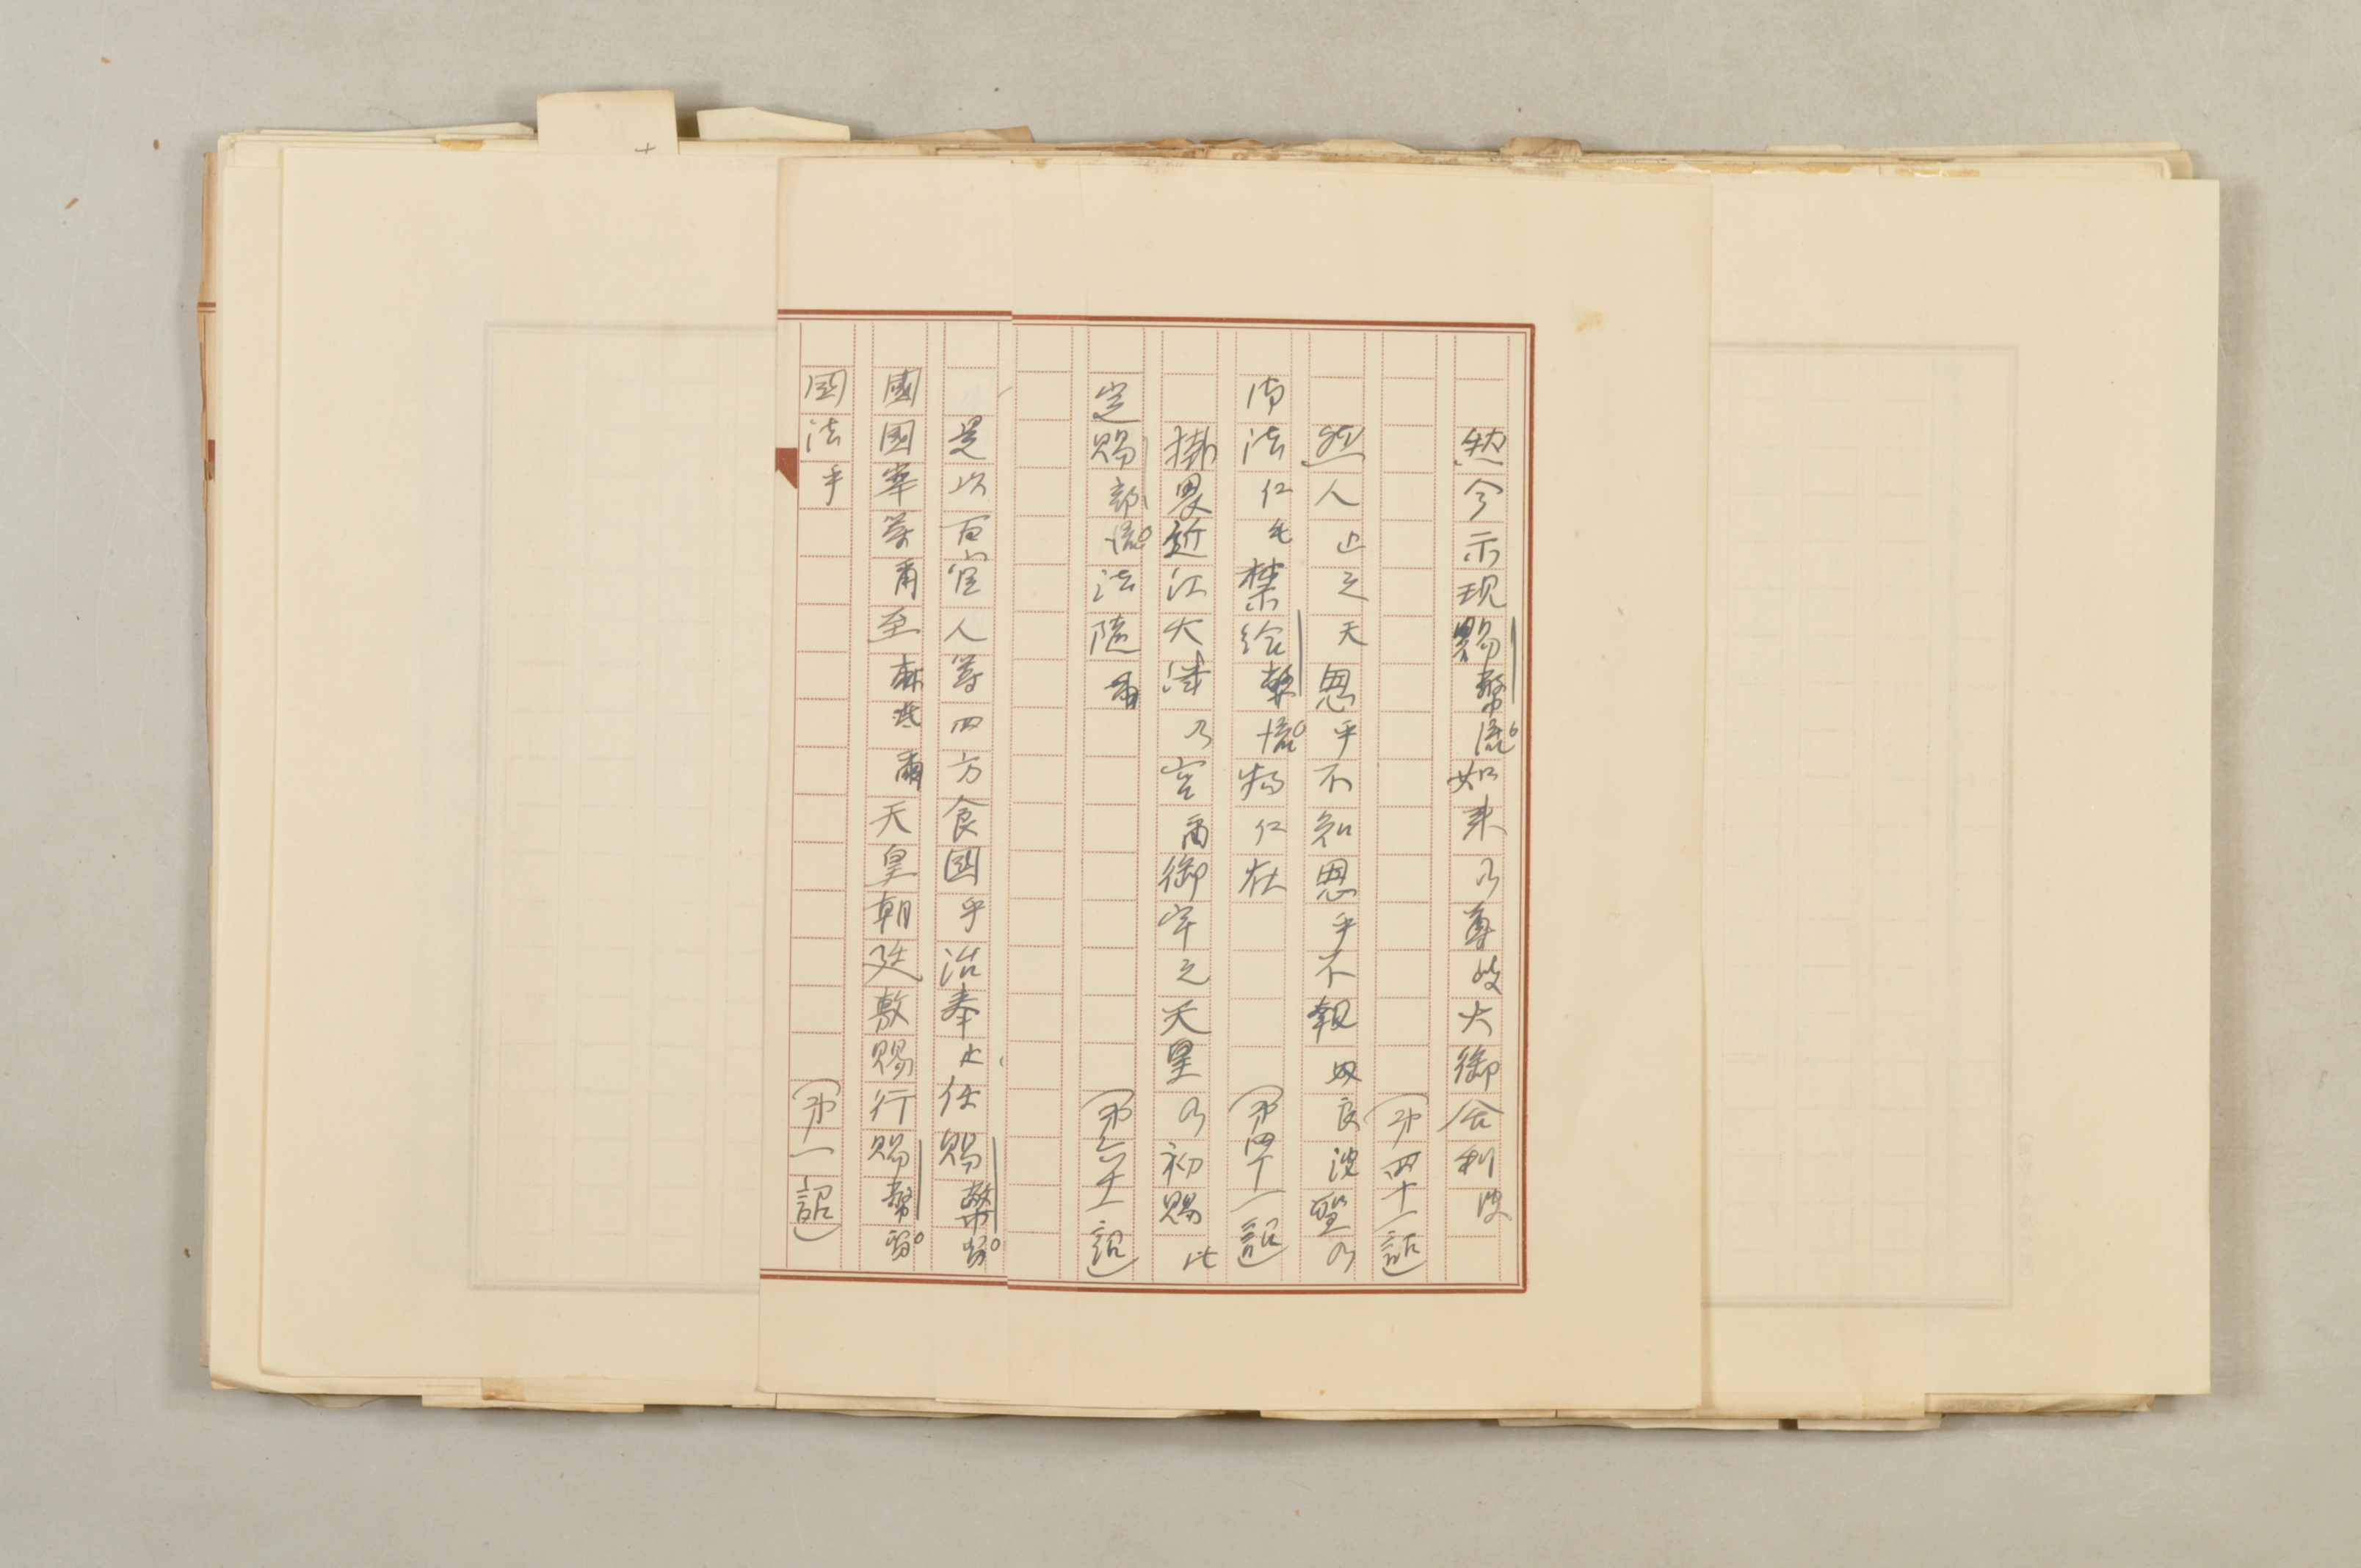 然今示現賜幣流如来乃尊岐大御舎利波
(第四十一詔)
然人止之天恩乎不知恩乎不報奴良波聖乃
御法仁毛禁給弊流物仁在 (第四十一詔)
掛畏近江大津乃宮爾御宇之天皇乃初賜比
定賜部流法隨爾 (第六十一詔)
是以百官人等四方食国乎治奉止任賜幣留
國國宰等爾至麻弖爾天皇朝廷敷賜行賜幣留
国法乎 (第一詔)